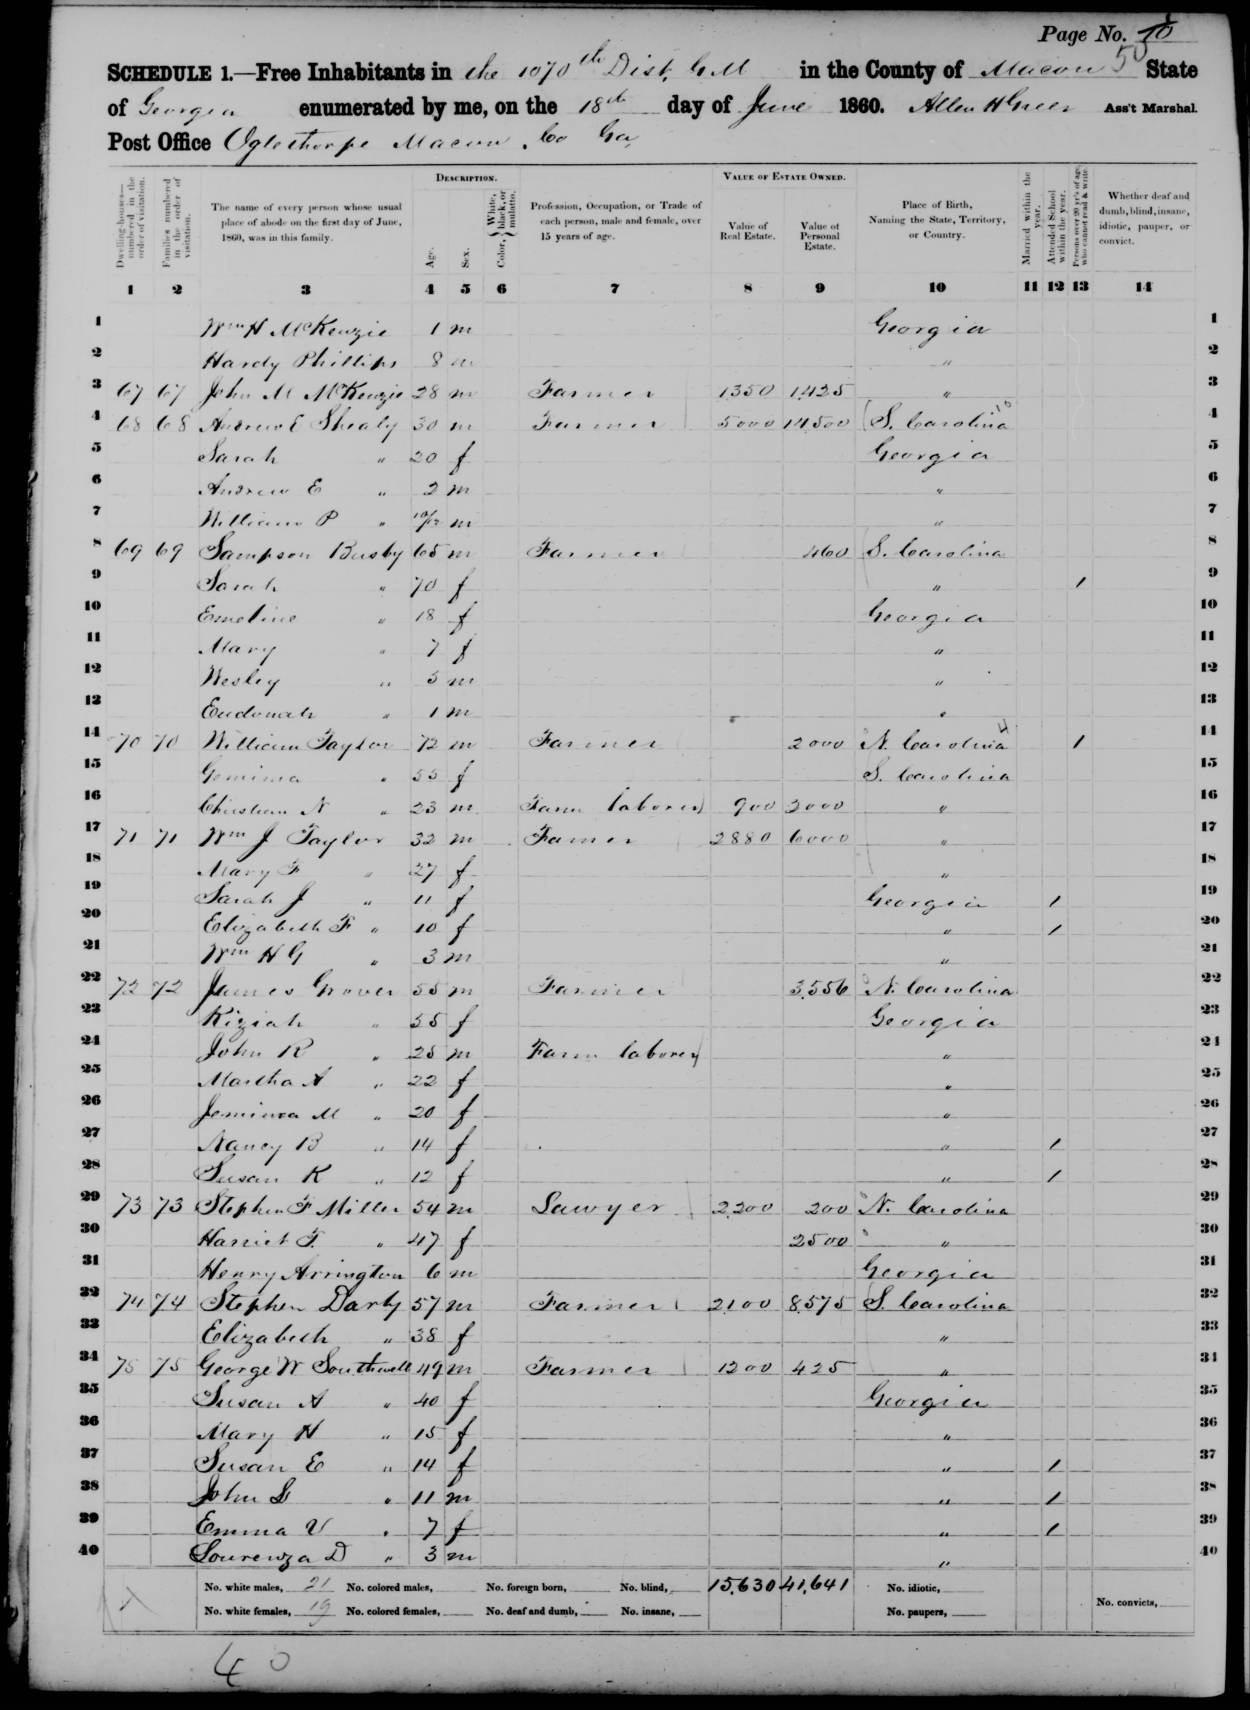 Page No. 10
50
SCHEDULE 1.—Free Inhabitants in the 1070th Dist, G M in the County of Macon State
of Georgia enumerated by me, on the 18th day of June 1860. Allen H Greer Ass't Marshal.
Post Office Oglethorpe Macon Co Ga,
DESCRIPTION. VALUE OF ESTATE OWNED.
Dwelling-houses—numbered in the order of visitation. Families numbered in the order of visitation. The name of every person whose usual place of abode on the first day of June, 1860, was in this family. Age. Sex. Color, White, black, or mulatto. Profession, Occupation, or Trade of each person, male and female, over 15 years of age. Value of Real Estate. Value of Personal Estate. Place of Birth, Naming the State, Territory, or Country. Married within the year. Attended School within the year. Persons over 20 yr's of age who cannot read & write. Whether deaf and dumb, blind, insane, idiotic, pauper, or convict.
1 2 3 4 5 6 7 8 9 10 11 12 13 14
1 Wm H McKenzie 1 m Georgia 1
2 Hardy Phillips 8 m " 2
3 67 67 John M McKenzie 28 m Farmer 1350 1425 " 3
4 68 68 Andrew E Shealy 30 m Farmer 5000 14,500 S. Carolina 4
5 Sarah " 20 f Georgia 5
6 Andrew E " 2 m " 6
7 William P " 10/12 m " 7
8 69 69 Sampson Busby 65 m Farmer 460 S. Carolina 8
9 Sarah " 70 f " / 9
10 Emeline " 18 f Georgia 10
11 Mary " 7 f " 11
12 Wesley " 5 m " 12
13 Eudonah " 1 m " 13
14 70 70 William Taylor 72 m Farmer 2000 N. Carolina / 14
15 Gemima " 55 f S. Carolina 15
16 Christian N " 23 m Farm laborer 900 2000 " 16
17 71 71 Wm J Taylor 32 m Famer 2880 6000 " 17
18 Mary F " 27 f " 18
19 Sarah J " 11 f Georgia / 19
20 Elizabeth F " 10 f " / 20
21 Wm H G " 3 m " 21
22 72 72 James Grover 55 m Farmer 3,556 N. Carolina 22
23 Kiziah " 55 f Georgia 23
24 John R " 25 m Farm laborer " 24
25 Martha A " 22 f " 25
26 Jemima M " 20 f " 26
27 Nancy B " 14 f " / 27
28 Susan K " 12 f " / 28
29 73 73 Stephen F Miller 54 m Lawyer 2,200 200 N. Carolina 29
30 Harriet F. " 47 f 2500 " 30
31 Henry Arrington 6 m Georgia 31
32 74 74 Stephen Darby 57 m Farmer 2,100 8,575 S. Carolina 32
33 Elizabeth " 38 f " 33
34 75 75 George W Southwell 49 m Farmer 1200 425 " 34
35 Susan A " 40 f Georgia 35
36 Mary H " 15 f " 36
37 Susan E " 14 f " / 37
38 John L " 11 m " / 38
39 Emma V " 7 f " / 39
40 Lourenza D " 3 m " 40
No. white males, 21 No. colored males, No. foreign born, No. blind, 15,630 41,641 No. idiotic,
No. white females, 19 No. colored females, No. deaf and dumb, No. insane, No. paupers, No. convicts,
40